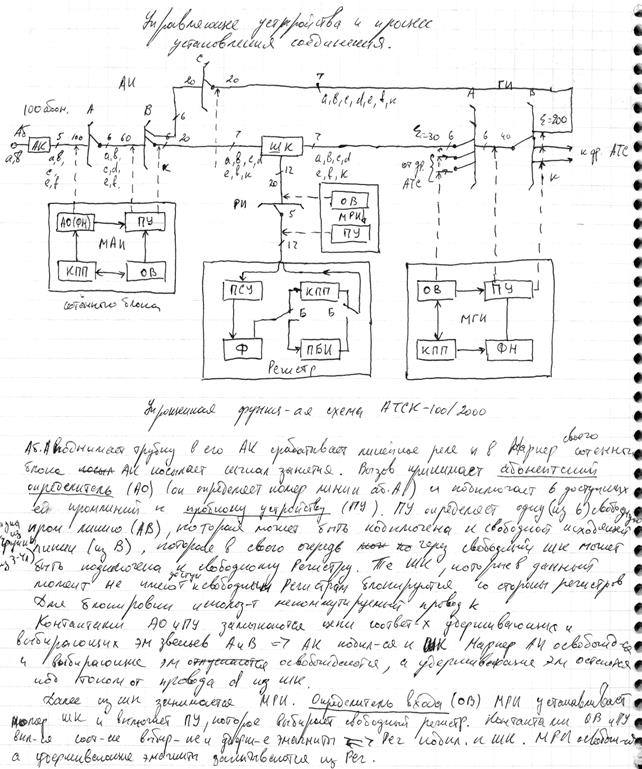 Управляющие устройства и процесс
установления соединения.
АИ
ГИ
С
20
20
7
a, b, c, d, e, f, к
6
100 абон.
А
В
А
В
Аб.
а, в
АК
5
100
6
60
6
20
7
ШК
7
Σ=30
6
6
40
Σ=200
к др. АТС
а, в,
с,
е, f
а, b
c, d
e, f,
к
a, b, c, d
e, f, к
a, b, c, d
e, f, к
от др.
АТС
к
12
20
РИ
5
12
ОВ
МРИ
ПУ
АО(ФН)
ПУ
МАИ
КПП
ОВ
сотенного блока
ПСУ
КПП
Б
Б
Ф
ПБИ
Регистр
ОВ
ПУ
МГИ
КПП
ФН
Упрощенная функц-ая схема АТСК-100/2000
Аб. А поднимает трубку в его АК срабатывает линейное реле и в Маркер своего сотенного
блока АК посылает сигнал занятия. Вызов принимает абонентский
определитель (АО) (он определяет номер линии аб. А) и подключает 6 доступных
ей промлиний к пробному устройству (ПУ). ПУ определяет одну (из 6) свободную
пром линию (АВ), которая может быть подключена к свободной исходящей
линии (из В), которая в свою очередь через свободный ШК может
быть подключена к свободному Регистру. Те ШК, которые в данный
момент не имеют доступа к свободным Регистрам блокируются со стороны регистров
Для блокировки использ-т некоммутируемый провод к
Контактами АО и ПУ замыкаются цепи соответ-х удерживающих и
выбирающих эм звеньев А и В => АК подкл-ся к ШК Маркер АИ освобожд-ся
и выбирающие эм освобождаются, а удерживающие эм остаются
под током от провода d из ШК.
Далее из ШК занимается МРИ. Определитель входа (ОВ) МРИ устанавливает
номер ШК и включает ПУ, которое выбирает свободный регистр. Контактами ОВ и ПУ
вкл-ся соот-ие выбир-ие и удерж-ие эмагниты => Рег подкл. к ШК. МРИ освобож-ся
а удерживающие эмагниты запитываются из Рег.